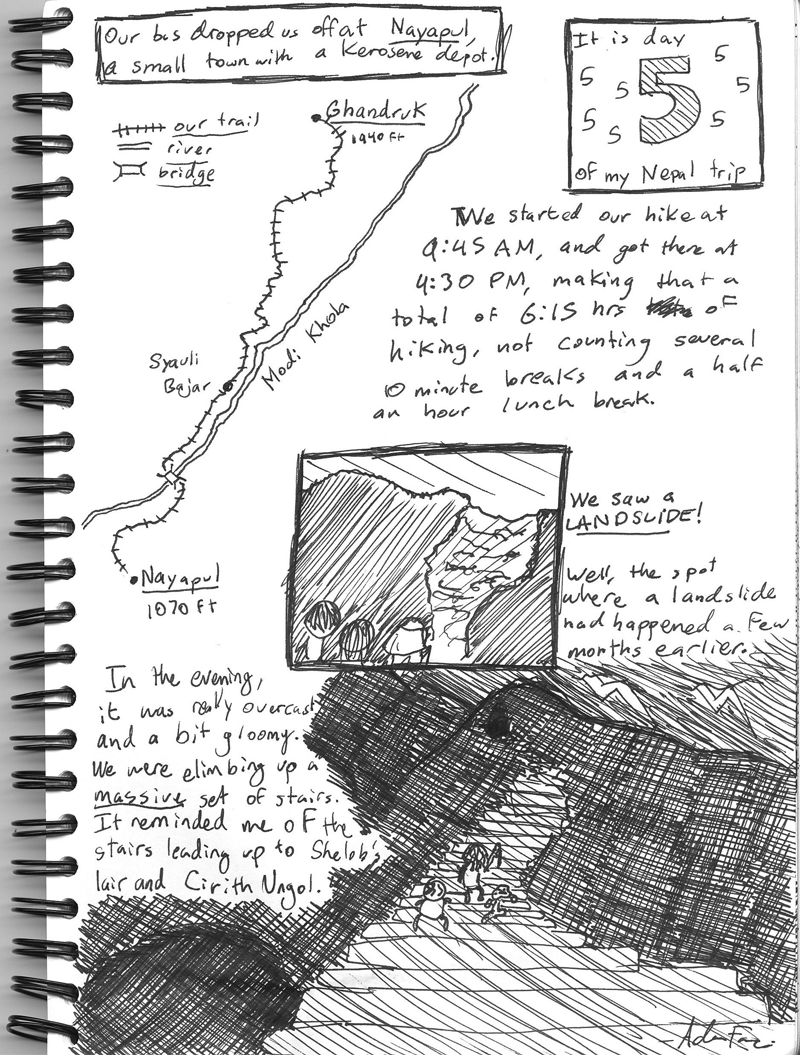 Our bus dropped us off at Nayapul,
a small town with a Kerosene depot.
It is day
5
5
5
5
5
5
5
5
of my Nepal trip
our trail
river
bridge
Ghandruk
1940 ft
Syauli
Bajar
Modi Khola
Nayapul
1070 ft
We started our hike at
9:45 AM, and got there at
4:30 PM, making that a
total of 6:15 hrs of
hiking, not counting several
10 minute breaks and a half
an hour lunch break.
We saw a
LANDSLIDE!
Well, the spot
where a landslide
had happened a few
months earlier.
In the evening,
it was really overcast
and a bit gloomy.
We were climbing up a
massive set of stairs.
It reminded me of the
stairs leading up to Shelob's
lair and Cirith Ungol.